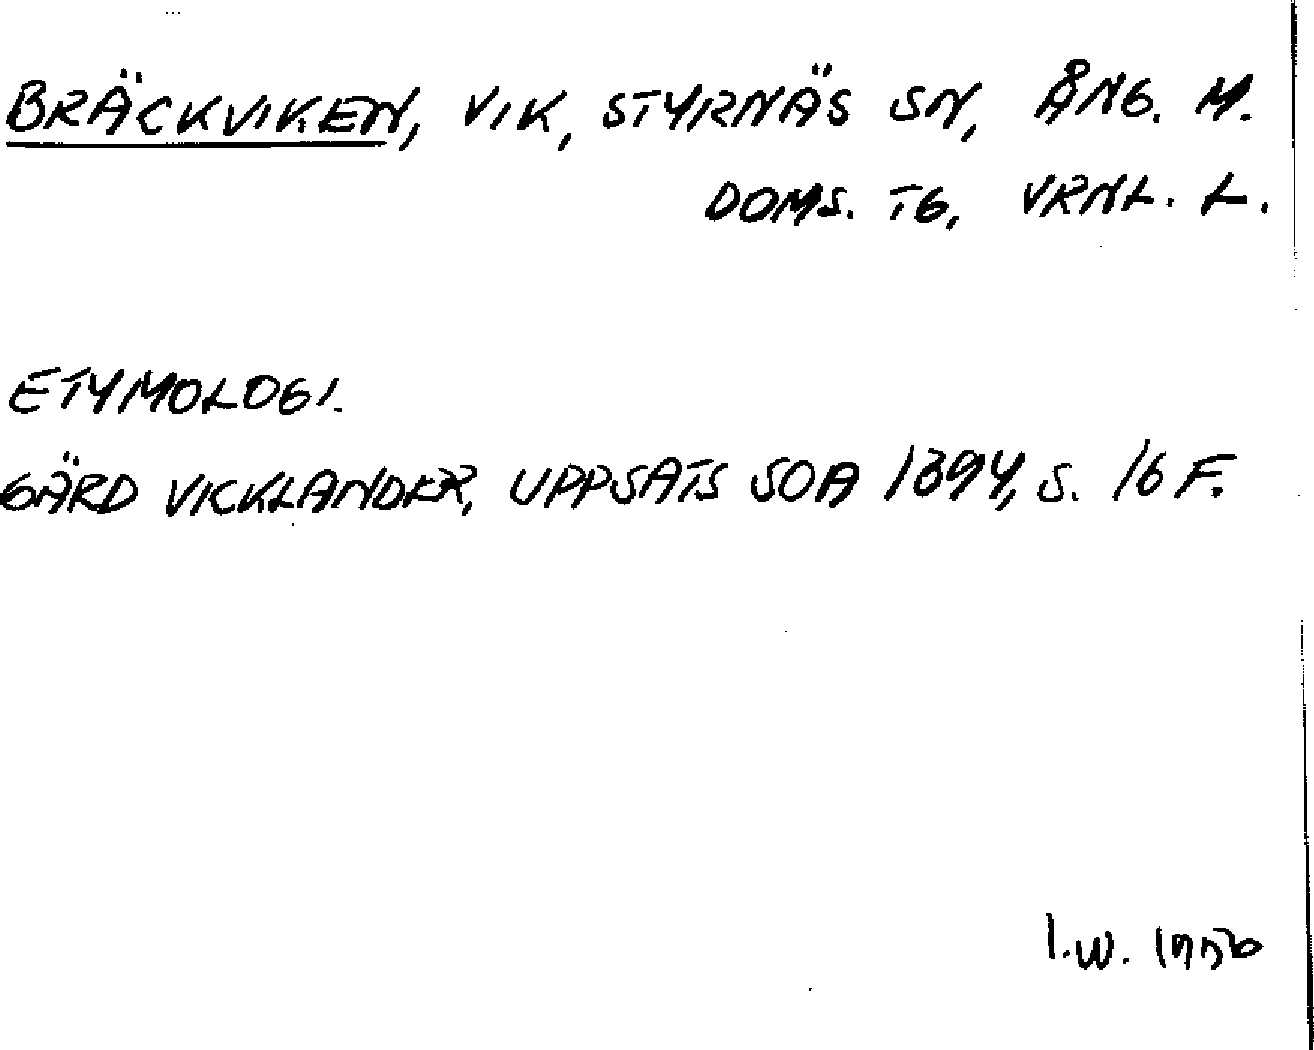 BRÄCKVIKEN, VIK, STYRNÄS SN, ÅNG. M.
DOMS. TG, VRNL. L.
ETYMOLOGI.
GÄRD VICKLANDER, UPPSATS SOA 1894, S. 16 F.
I.W.